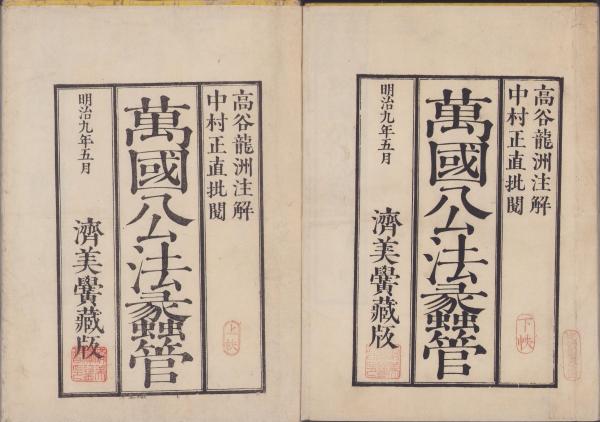 高谷龍洲注解
中村正直批閱
萬國公法蠡管
明治九年五月
濟美黌藏版
上帙
高谷龍洲注解
中村正直批閱
萬國公法蠡管
明治九年五月
濟美黌藏版
下帙